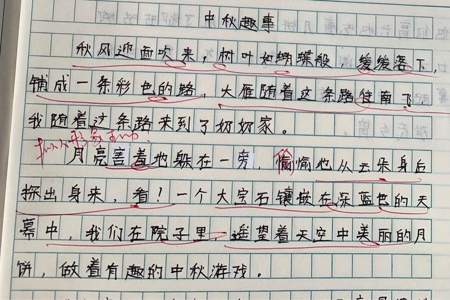 中秋趣事
秋风迎面吹来，树叶如蝴蝶般，缓缓落下，
铺成一条彩色的路，大雁随着这条路往南飞
我随着这条路来到了奶奶家。
月亮害羞地躲在一旁，偷偷地从云朵身后
探出身来，看！一个大宝石镶嵌在深蓝色的天
幕中，我们在院子里，遥望着天空中美丽的月
饼，做着有趣的中秋游戏。